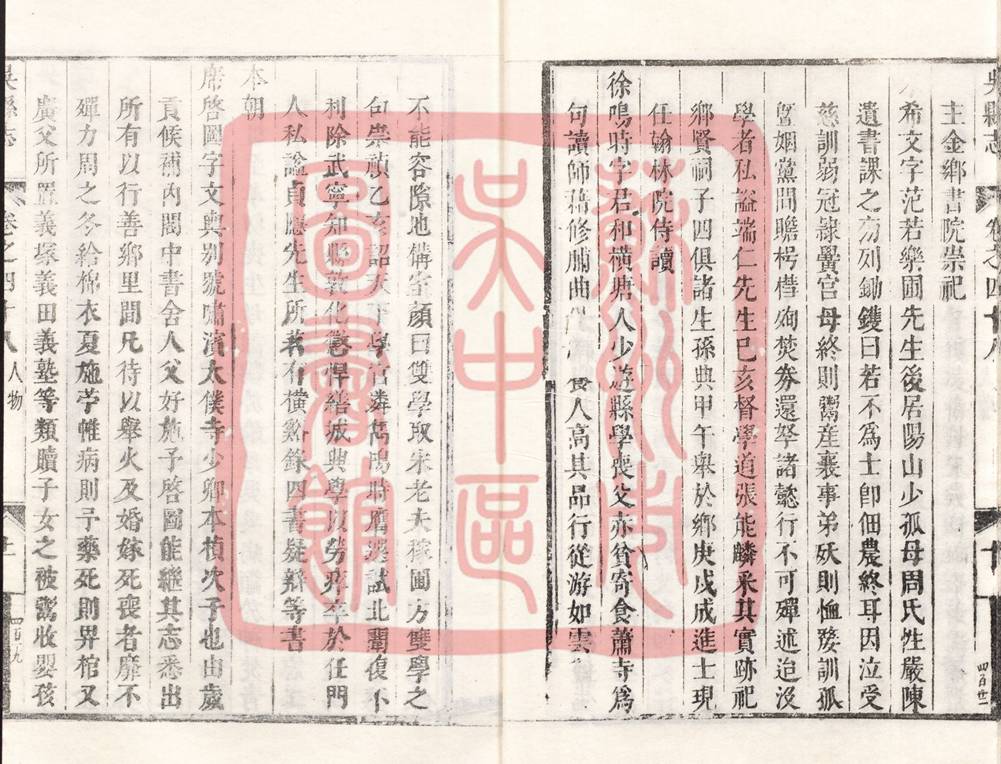 吳縣志
卷之四十八
主金鄉書院崇祀
希文字范若樂圃先生後居陽山少孤母周氏性嚴陳
遺書課之旁列鋤钁曰若不爲士卽佃農終耳因泣受
慈訓弱冠隷黌官母終則鬻產襄事弟殀則恤嫠訓孤
曁婣黨間贍枵
焚券還孥諸懿行不可殫述迨沒
學者私謚端仁先生已亥督學道張能麟采其實跡祀
鄉賢祠子四俱諸生孫典甲午舉於鄉庚戌成進士現
任翰林院侍讀
徐鳴時字君和橫塘人少遊縣學喪父亦貧寄食蕭寺爲
句讀師藉修脯曲
食人高其品行從游如雲
四百廿二
不能容隙地構室顏曰雙學取宋老夫稼圃方雙學之
句崇禎乙亥詔天下學官
鳴時膺選試北闈復卜
利除武寧知縣敦化懲悍繕城興學以勞瘁卒於任門
人私謚貞應先生所著有橫谿錄四書疑辯等書
本朝
席啓圖字文輿別號嘯濱太僕寺少卿本楨次子也由歲
貢候補內閣中書舍人父好施予啓圖能繼其志悉出
所有以行善鄉里間凡待以舉火及婚嫁死喪者靡不
殫力周之冬給棉衣夏施苧帷病則予藥死則畀棺又
廣父所置義塚義田義塾等類贖子女之被鬻收嬰孩
吳縣志
卷之四十八
人物
四百十九
蘇州市
吳中區
圖書館